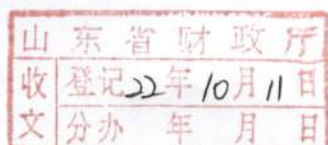 山东省财政厅
收文 登记22年10月11日
分办 年 月 日